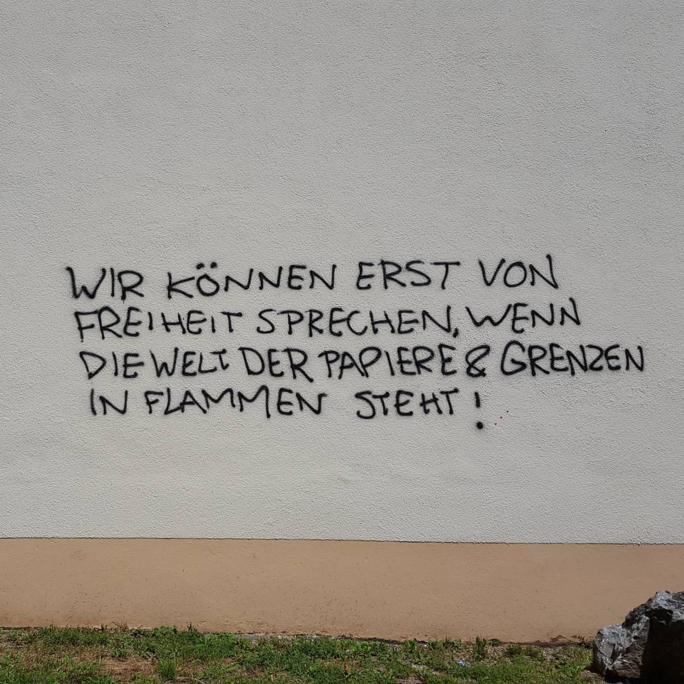 WIR KÖNNEN ERST VON
FREIHEIT SPRECHEN, WENN
DIE WELT DER PAPIERE & GRENZEN
IN FLAMMEN STEHT!